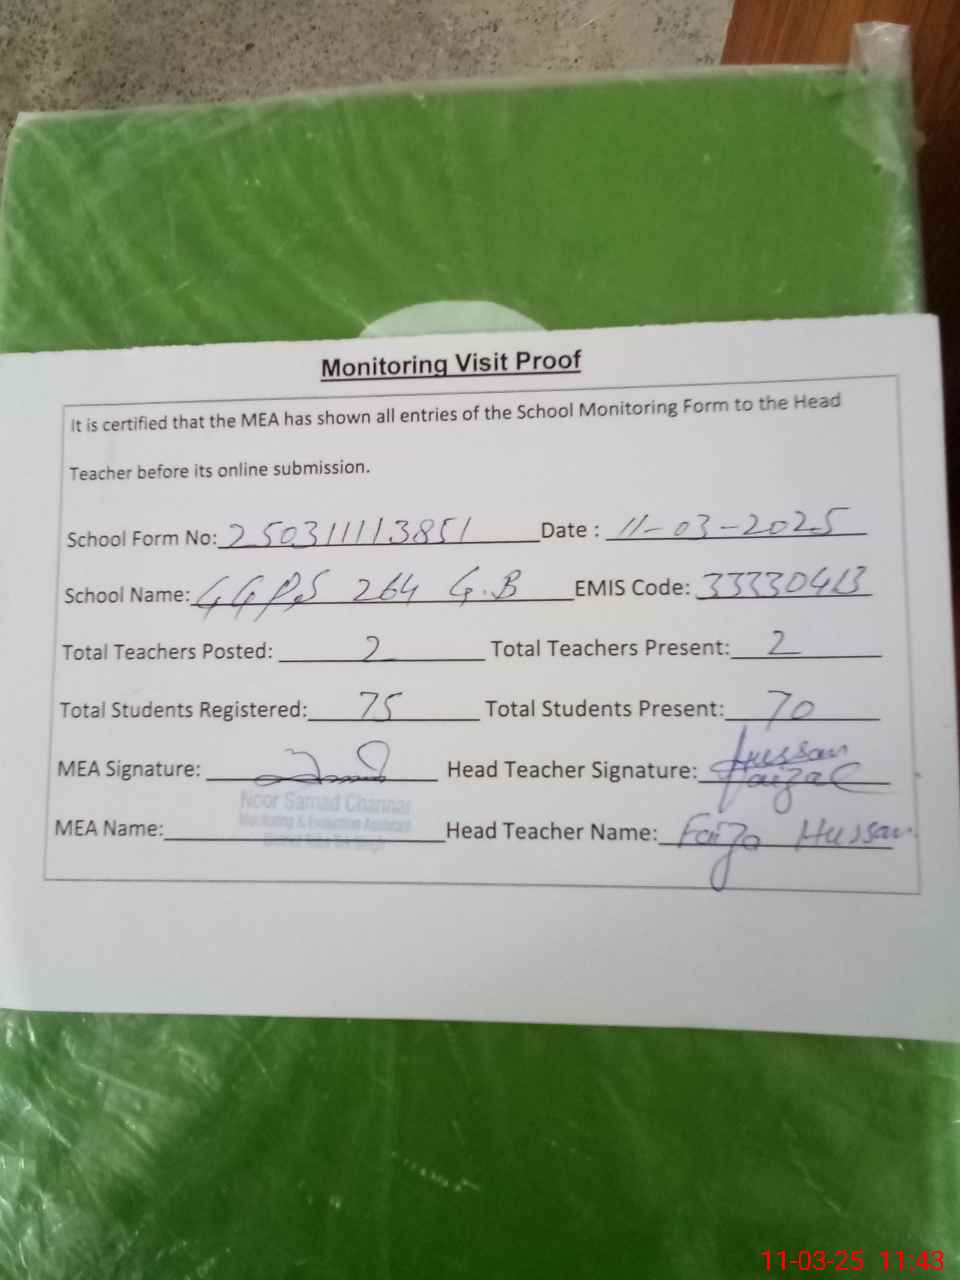 Monitoring Visit Proof
It is certified that the MEA has shown all entries of the School Monitoring Form to the Head
Teacher before its online submission.
School Form No: 250311113851 Date : 11-03-2025
School Name: GGPS 264 G.B EMIS Code: 33330413
Total Teachers Posted: 2 Total Teachers Present: 2
Total Students Registered: 75 Total Students Present: 70
MEA Signature: Head Teacher Signature: Hussan
Faiza
Noor Samad Channar
Monitoring & Evaluation Assistant
District Toba Tek Singh
MEA Name: Head Teacher Name: Faiza Hussan
11-03-25 11:43